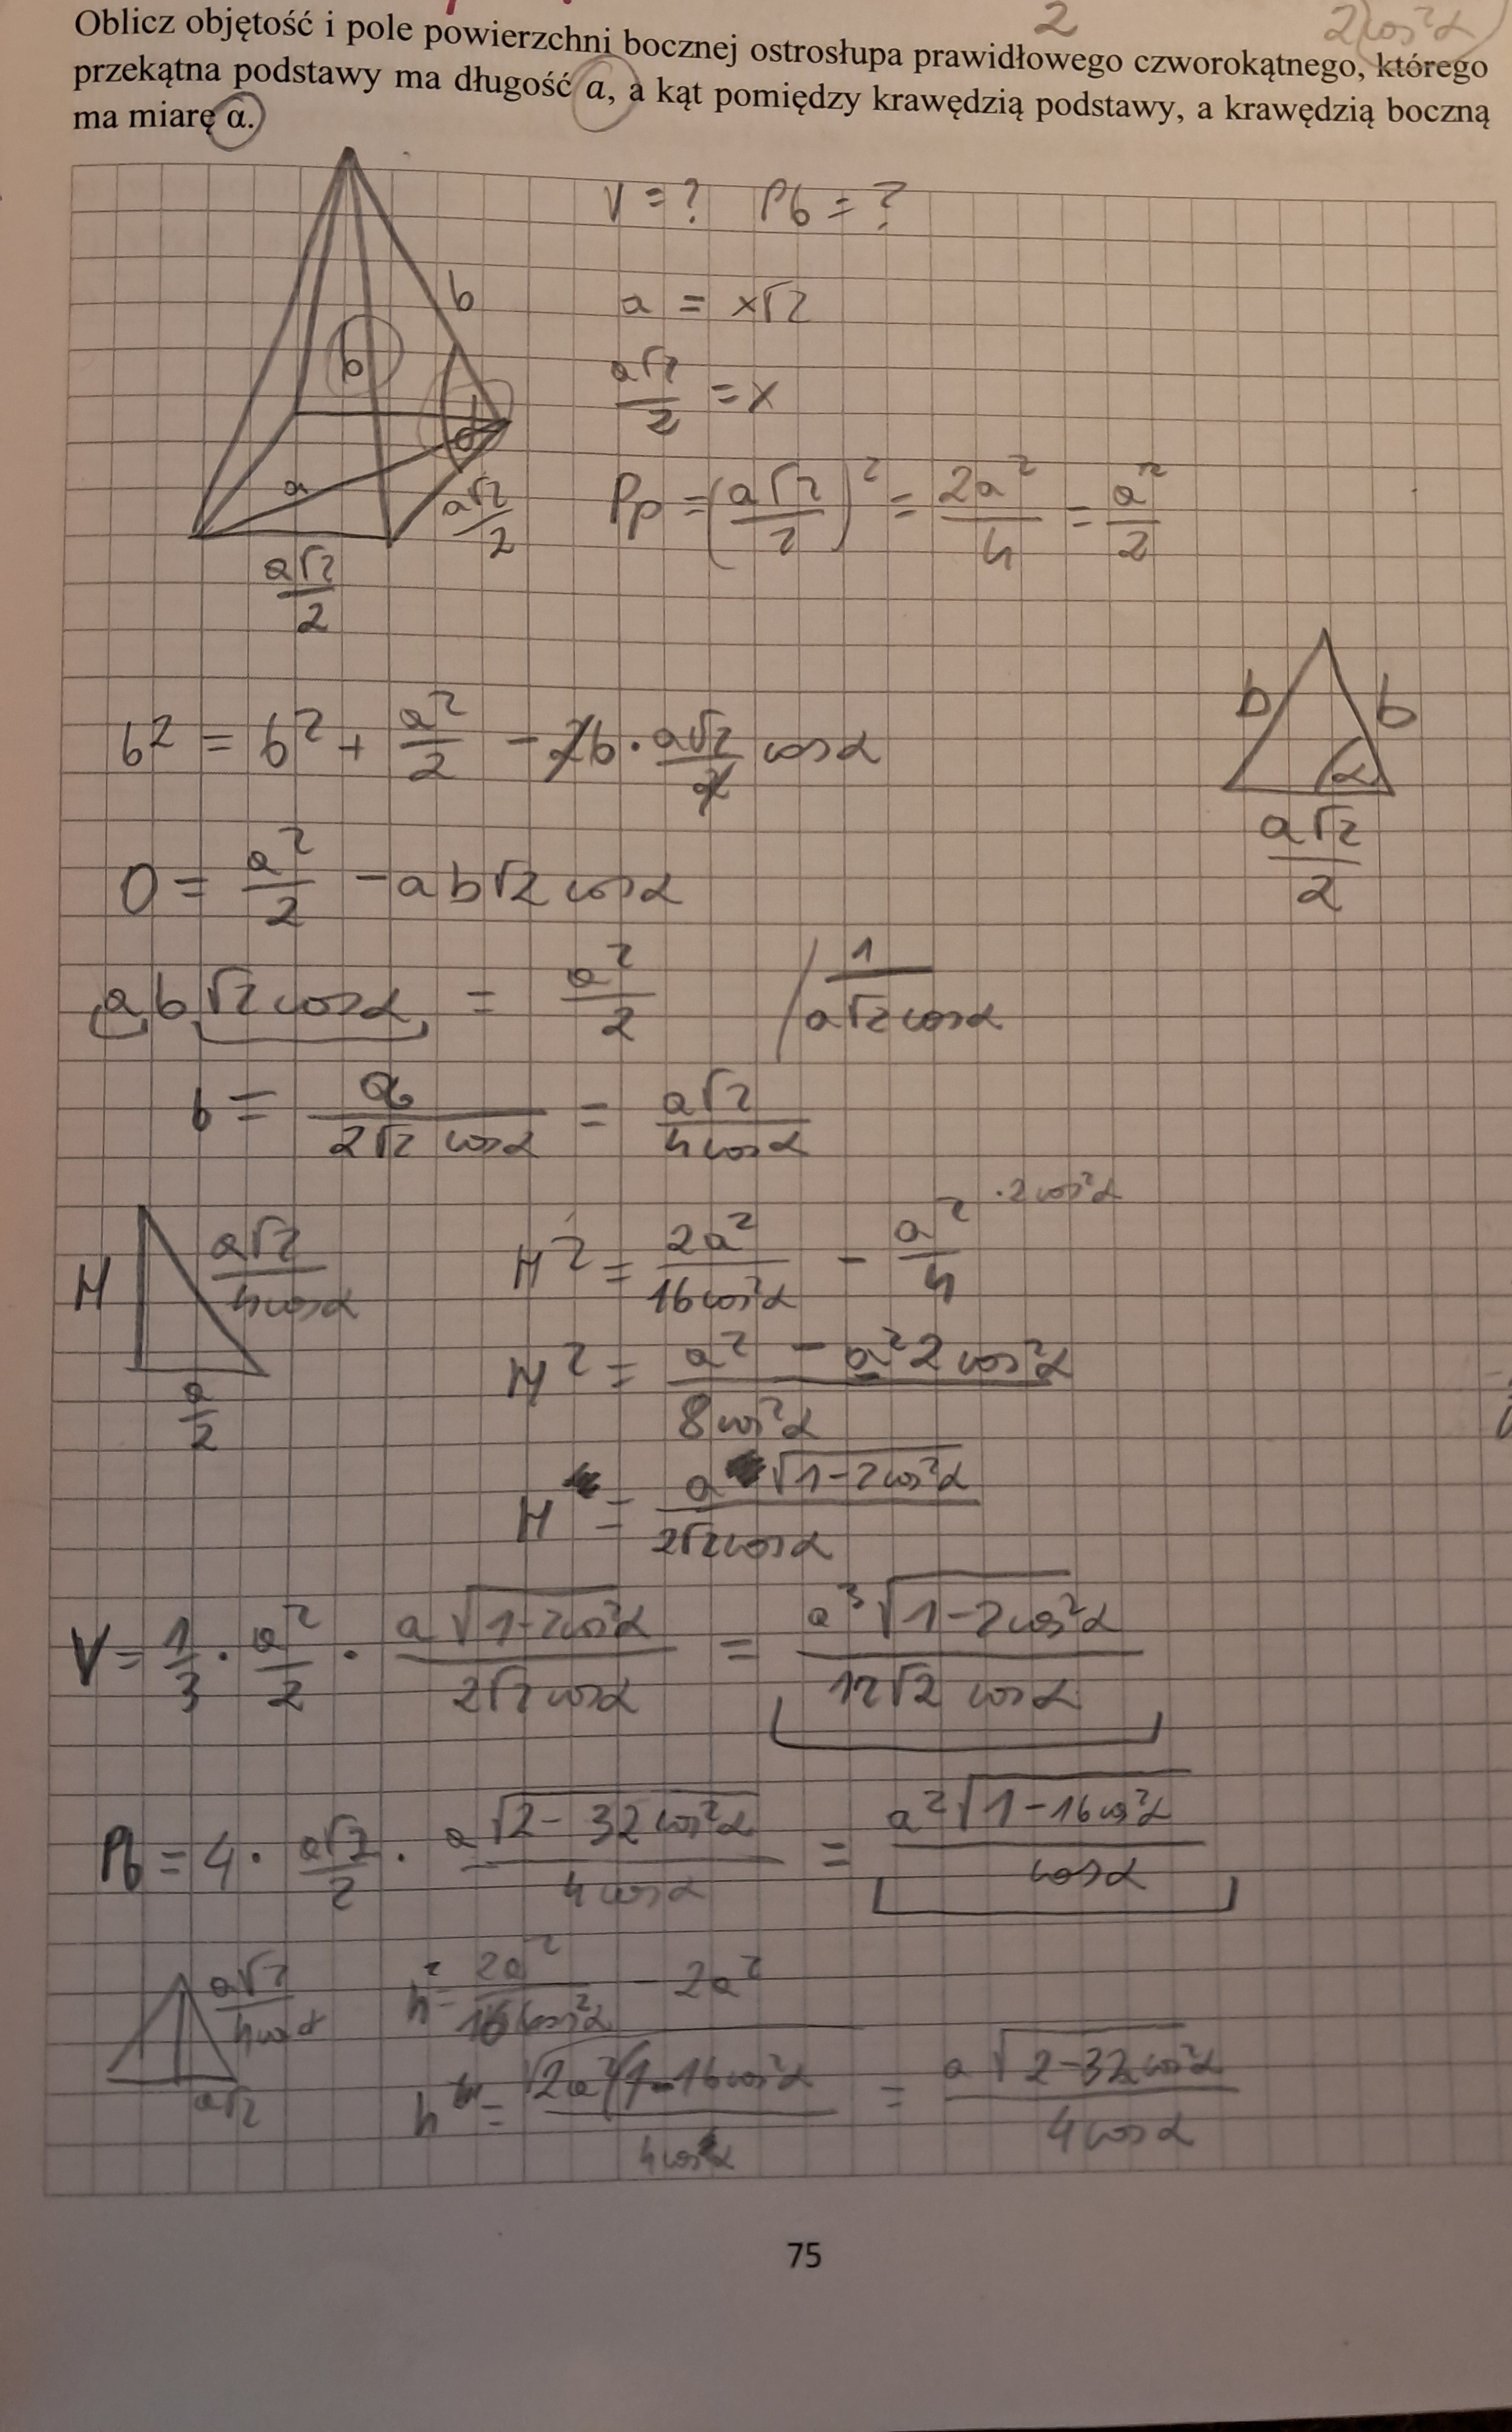 2
2(cos²α)
Oblicz objętość i pole powierzchni bocznej ostrosłupa prawidłowego czworokątnego, którego
przekątna podstawy ma długość a, a kąt pomiędzy krawędzią podstawy, a krawędzią boczną
ma miarę α.
V = ? Pb = ?
b
a = x√2
b
a√2/2 = x
α
a
a√2/2
Pp = (a√2/2)² = 2a²/4 = a²/2
a√2/2
b b
b² = b² + a²/2 - 2b · a√2/2 cosα
α
a√2/2
0 = a²/2 - ab√2 cosα
ab√2 cosα = a²/2 / 1/a√2cosα
b = a/2√2 cosα = a√2/4cosα
H a√2/4cosα
a/2
H² = 2a²/16cos²α - a²/4 ·2cos²α
H² = a² - a²2cos²α/8cos²α
H = a√1-2cos²α/2√2cosα
V = 1/3 · a²/2 · a√1-2cos²α/2√2cosα = a³√1-2cos²α/12√2 cosα
Pb = 4 · a√2/2 · a√2-32cos²α/4cosα = a²√1-16cos²α/cosα
a√2/4cosα
a√2
h² = 2a²/16cos²α - 2a²
h = √2a²(1-16cos²α/4cosα = a√2-32cos²α/4cosα
75